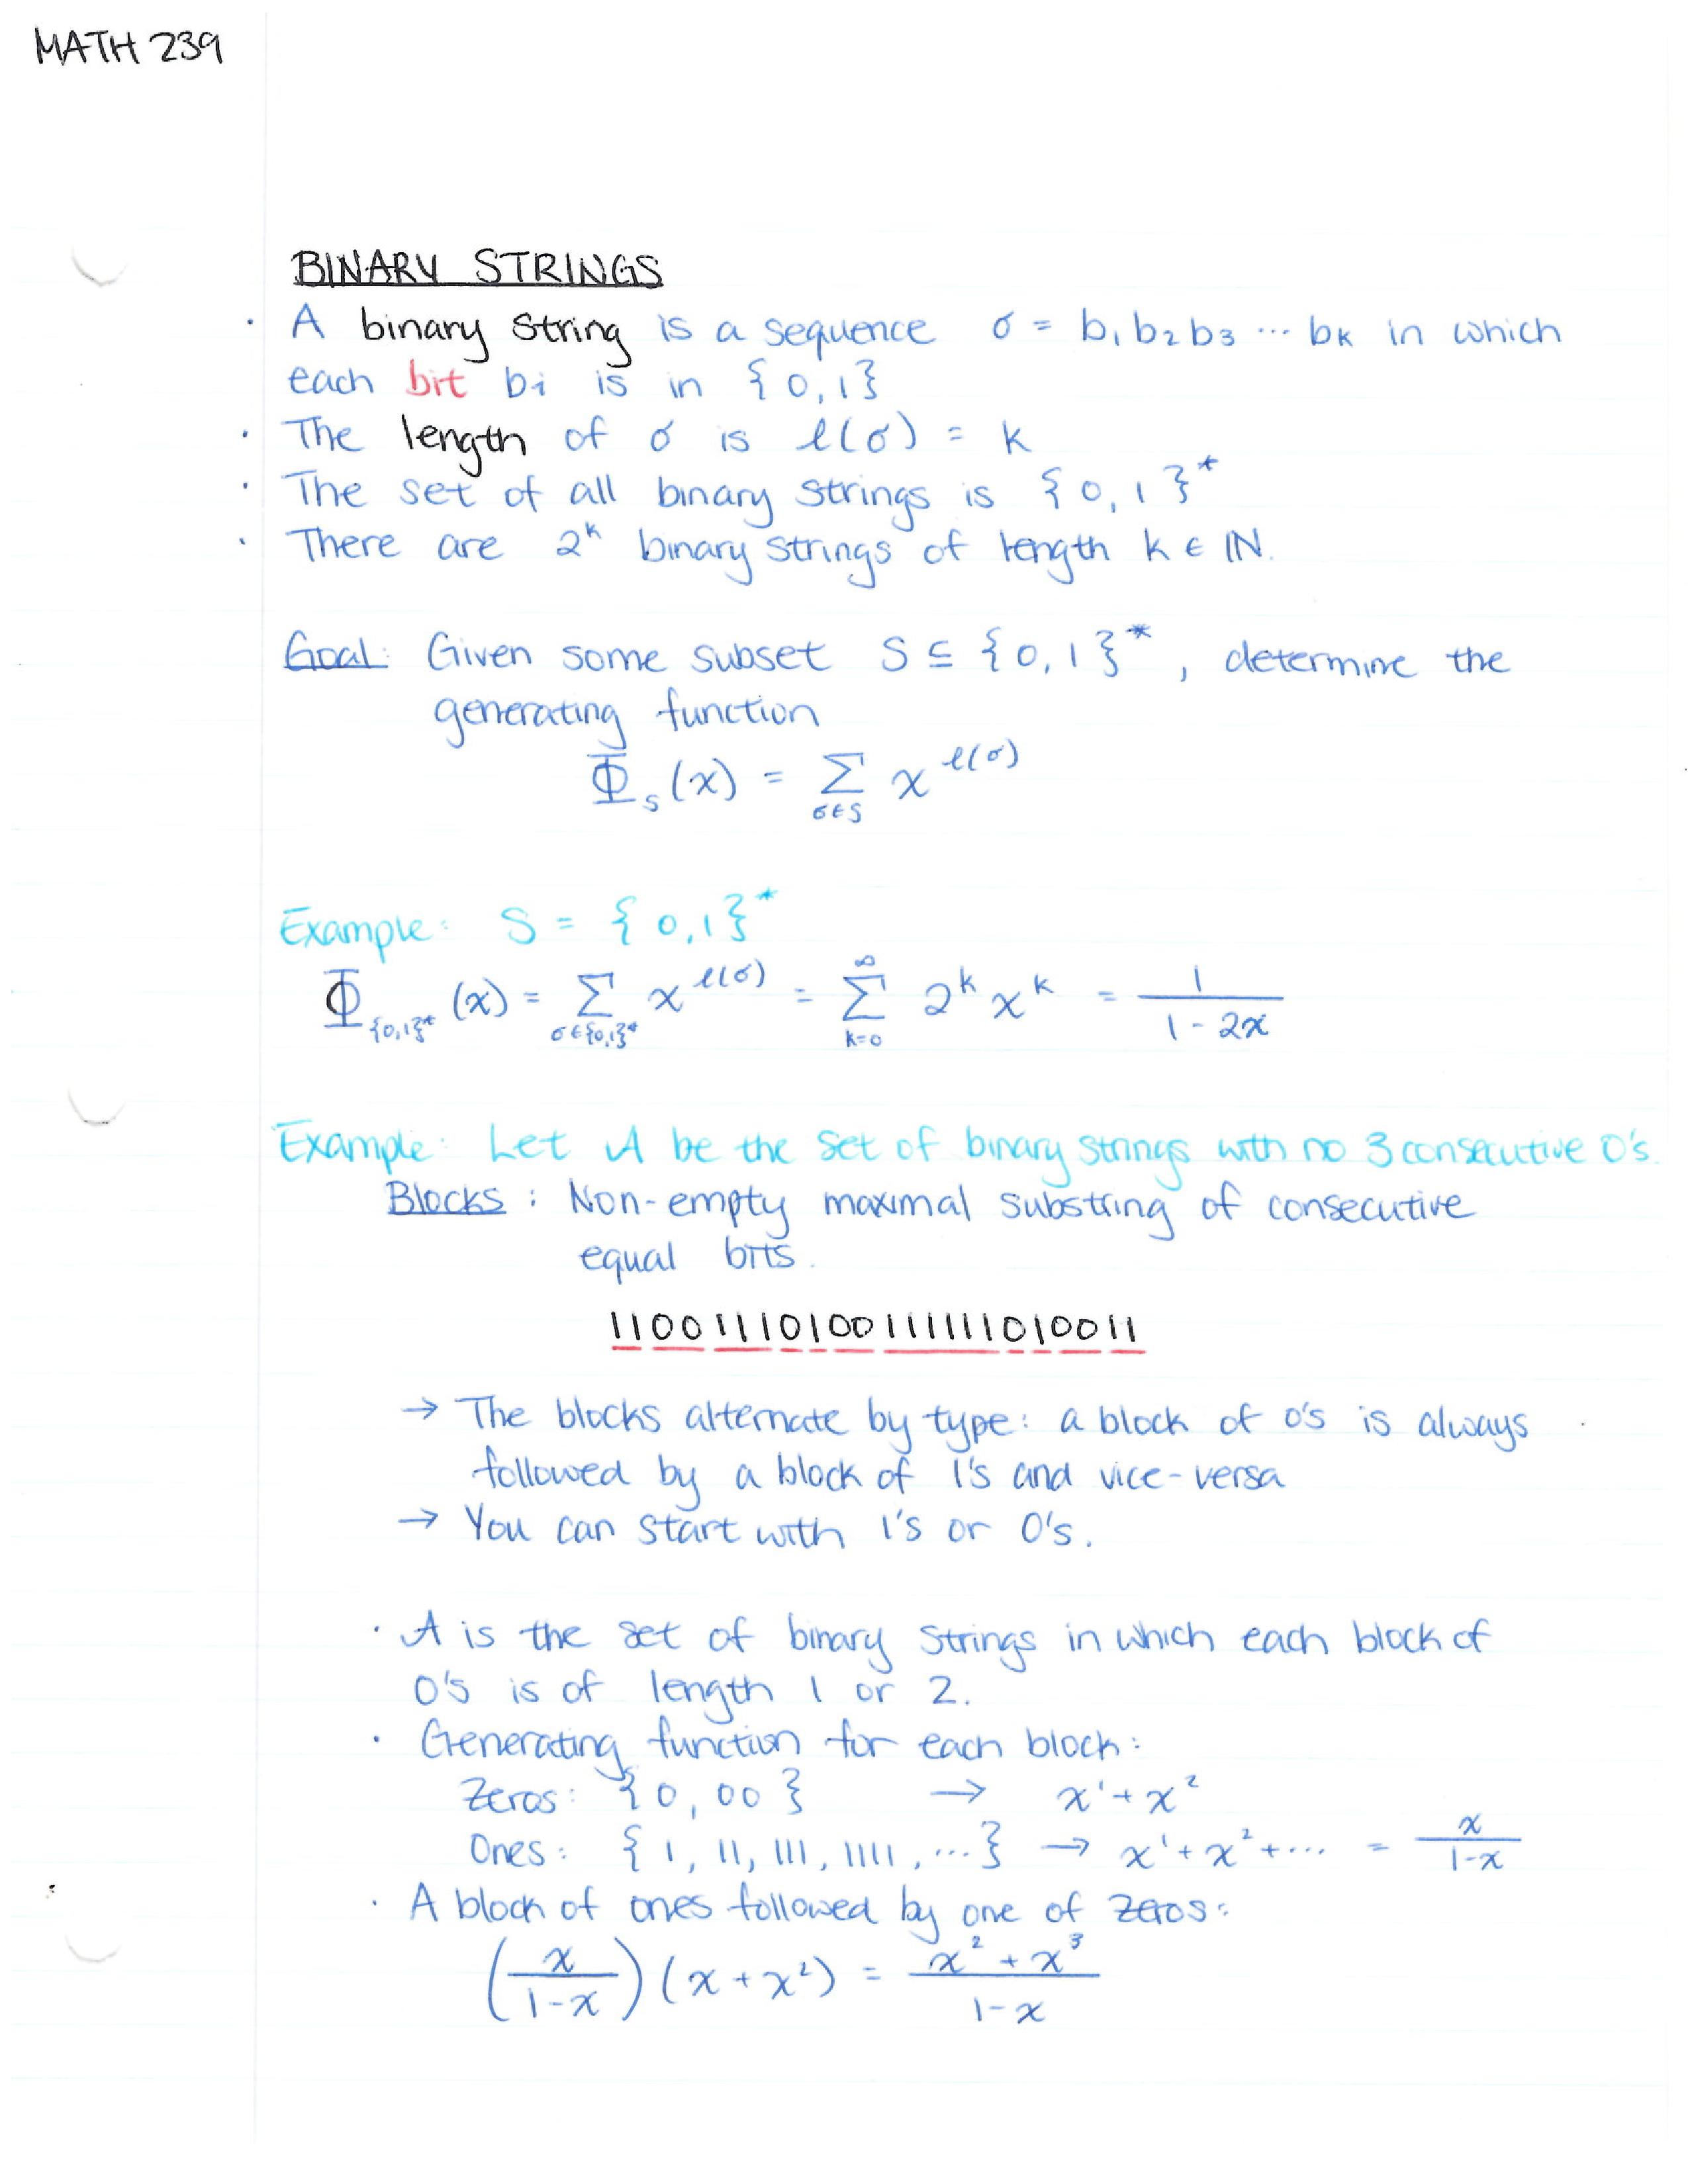 MATH 239
BINARY STRINGS
· A binary string is a sequence σ = b₁b₂b₃ ··· bₖ in which
each bit bᵢ is in {0,1}
· The length of σ is ℓ(σ) = k
· The set of all binary strings is {0,1}*
· There are 2ᵏ binary strings of length k ∈ ℕ.
Goal: Given some subset S ⊆ {0,1}*, determine the
generating function
Φ_S(x) = Σ_{σ∈S} x^{ℓ(σ)}
Example: S = {0,1}*
Φ_{{0,1}*}(x) = Σ_{σ∈{0,1}*} x^{ℓ(σ)} = Σ_{k=0}^{∞} 2^k x^k = 1/(1-2x)
Example: Let A be the set of binary strings with no 3 consecutive 0's.
Blocks: Non-empty maximal substring of consecutive
equal bits.
11001110100111111010011
→ The blocks alternate by type: a block of 0's is always
followed by a block of 1's and vice-versa
→ You can start with 1's or 0's.
· A is the set of binary strings in which each block of
0's is of length 1 or 2.
· Generating function for each block:
Zeros: {0, 00} → x¹ + x²
Ones: {1, 11, 111, 1111, ...} → x¹ + x² + ... = x/(1-x)
· A block of ones followed by one of zeros:
(x/(1-x))(x + x²) = (x² + x³)/(1-x)